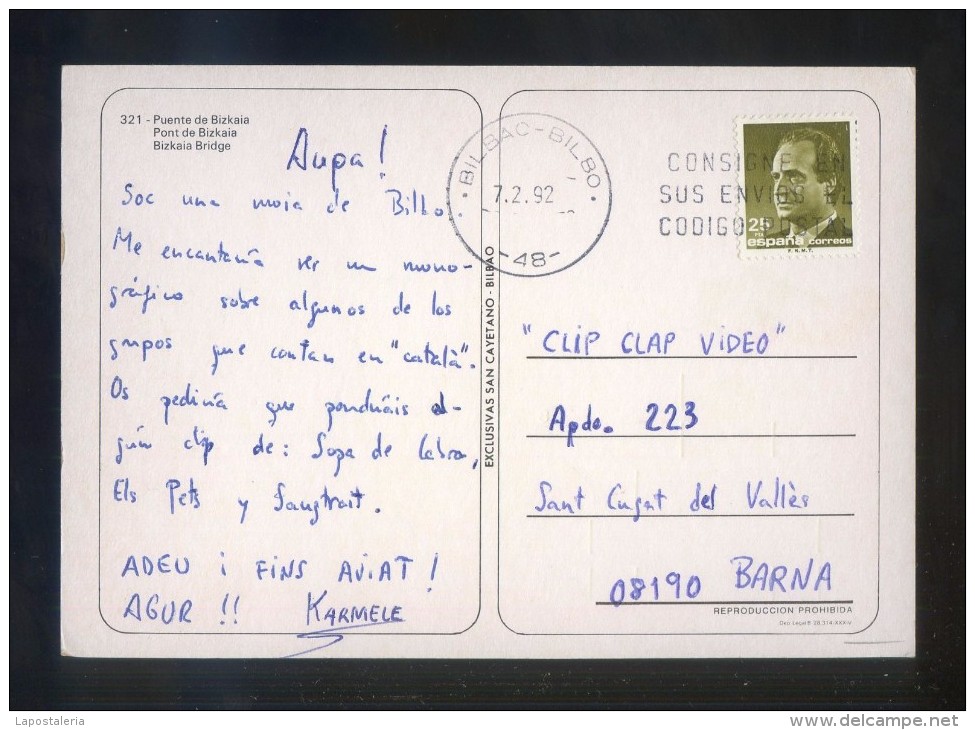 321 - Puente de Bizkaia
Pont de Bizkaia
Bizkaia Bridge
Aupa!
Soc una moia de Bilbo.
Me encantaría ver un mono-
gráfico sobre algunos de los
grupos que cantan en "català".
Os pediría que pondráis al-
gún clip de: Sopa de Cabra,
Els Pets y Sangtraït.
ADEU i FINS AVIAT!
AGUR!! KARMELE
EXCLUSIVAS SAN CAYETANO - BILBAO
· BILBAO - BILBO ·
7.2.92
- 48 -
CONSIGNE EN
SUS ENVIOS EL
CODIGO POSTAL
25
PTA
españa correos
F.N.M.T.
"CLIP CLAP VIDEO"
Apdo. 223
Sant Cugat del Vallès
08190 BARNA
REPRODUCCION PROHIBIDA
Dep. Legal B 28.314-XXXIV
Lapostaleria
delcampe.net